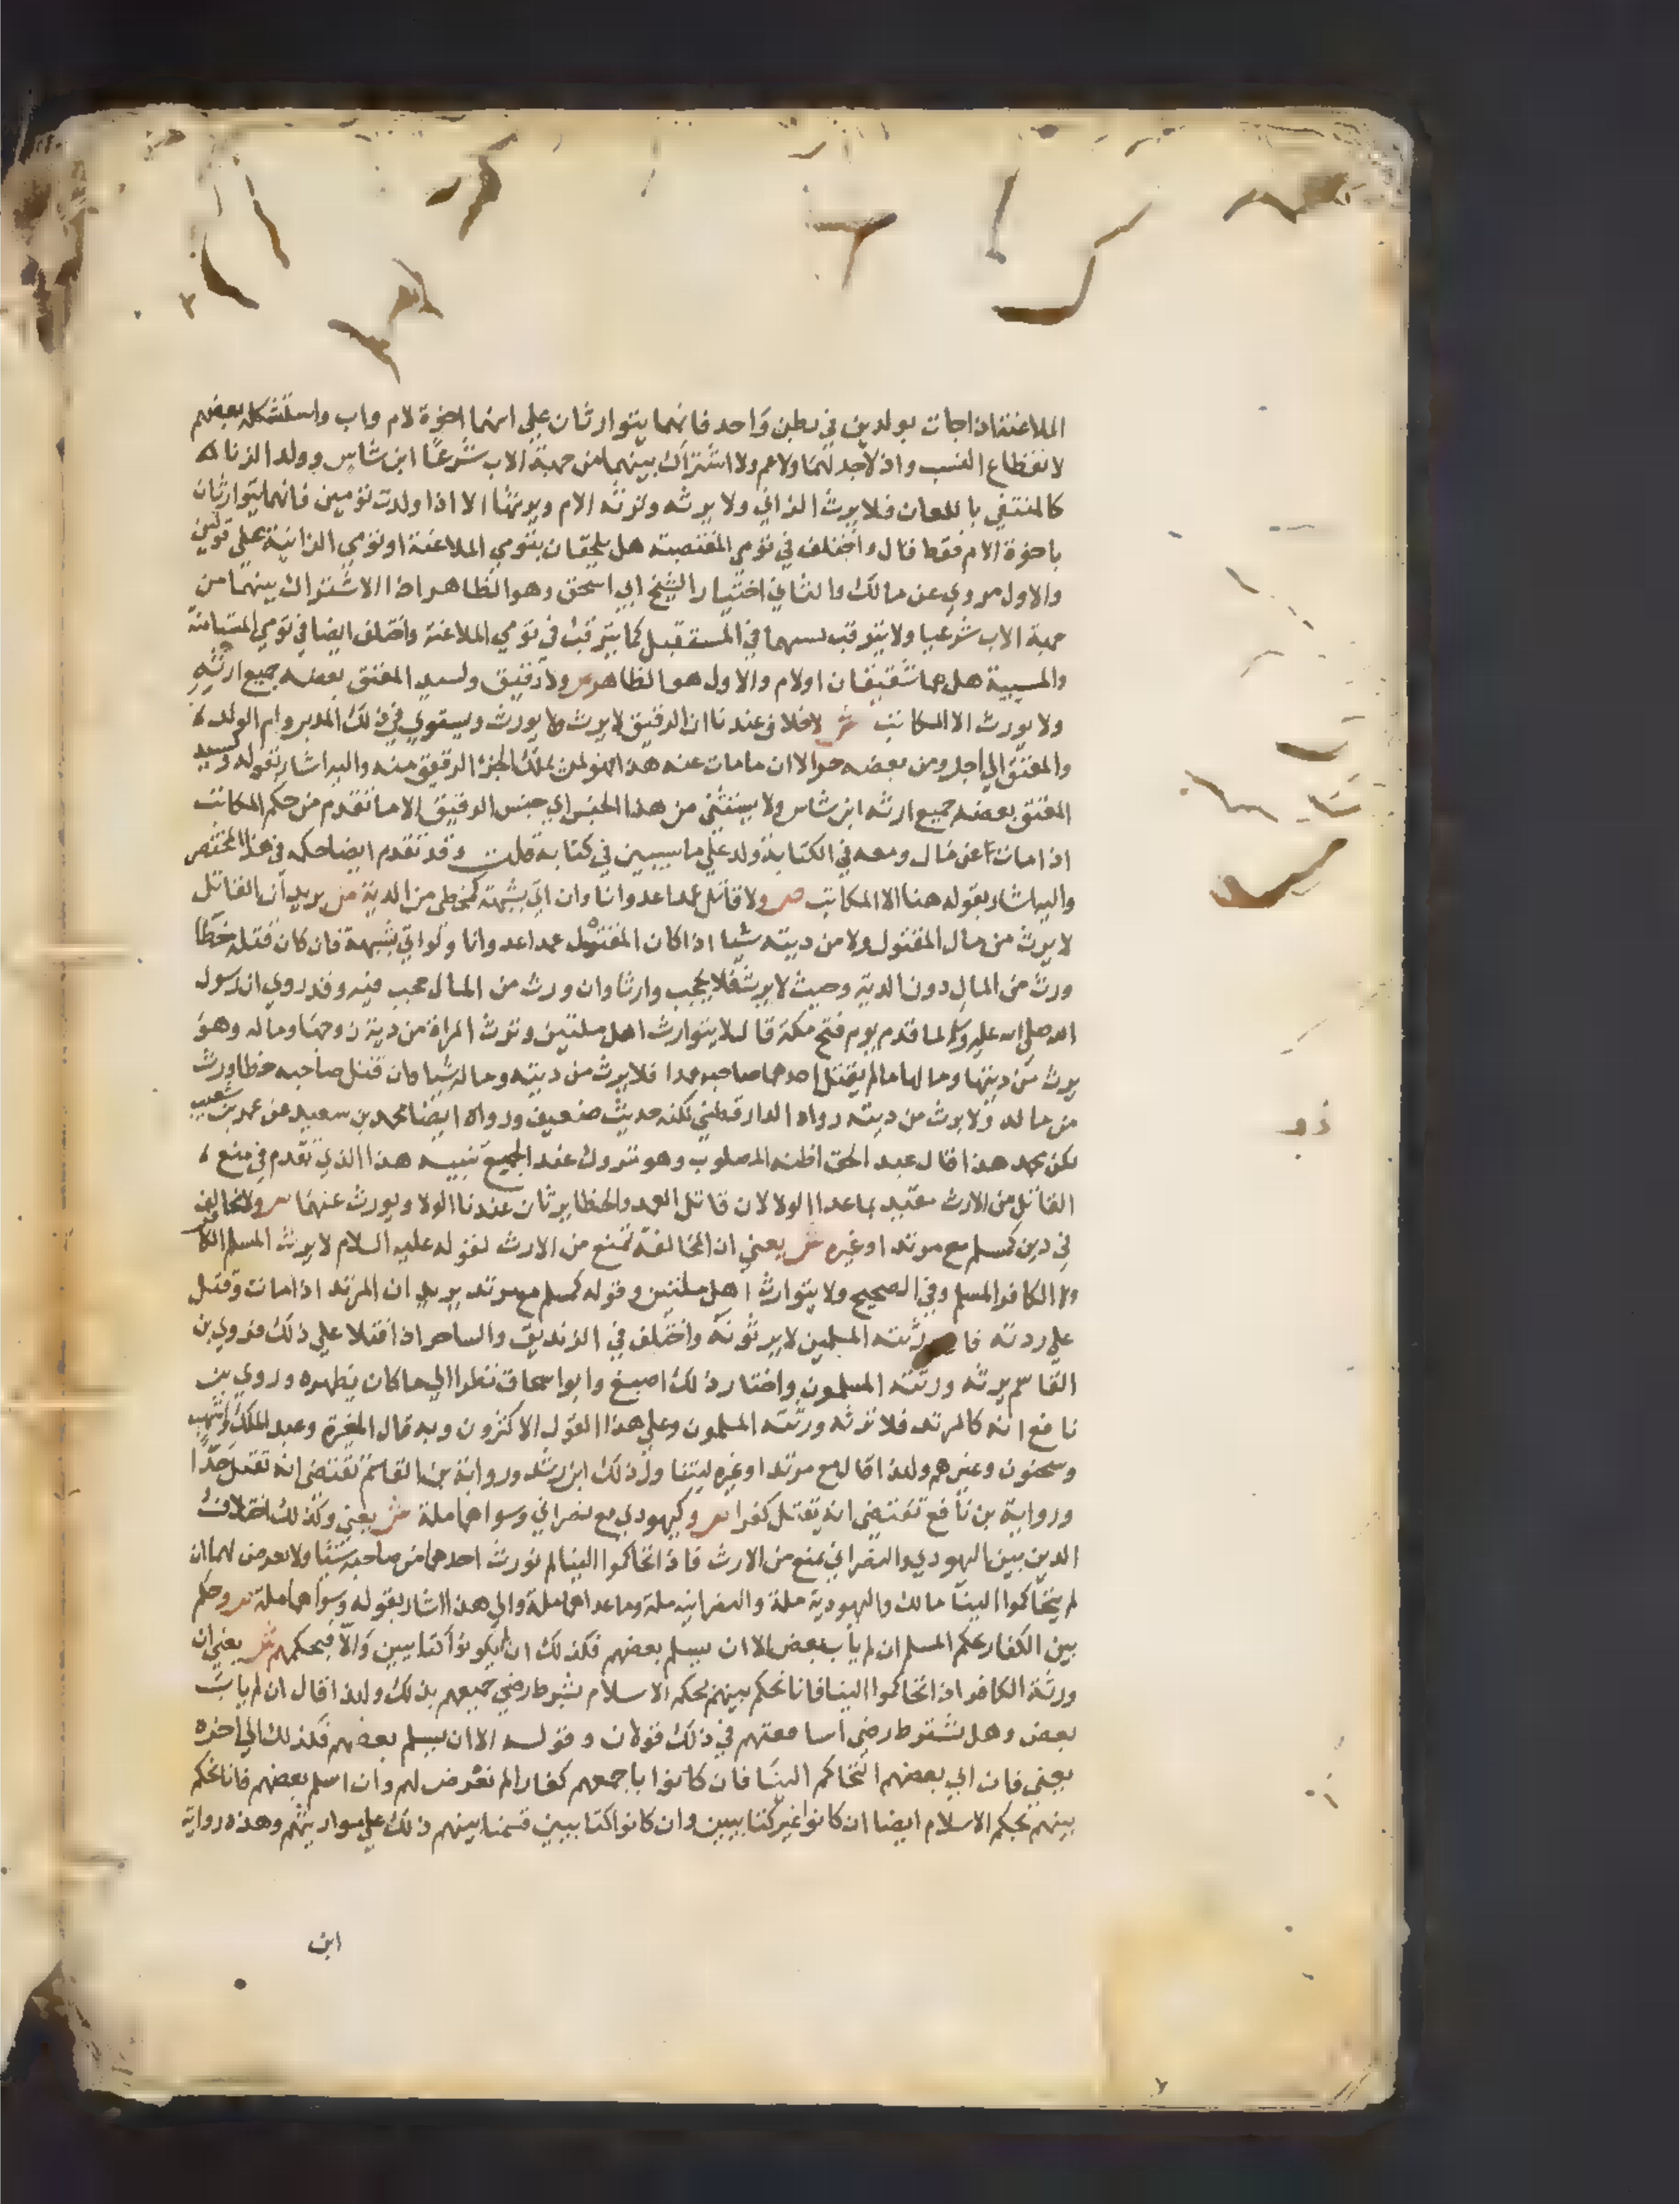 الملاعنة اذا جات بولدين في بطن واحد فانهما يتوارثان علي انهما اخوة لام واب واستشكله بعضهم
لانقطاع النسب واذ لا جد لهما ولا عم ولا اشتراك بينهما من جهة الاب شرعا ابن شاس وولد الزناء
كالمنتفي باللعان فلا يرث الزاني ولا يرثه وترثه الام ويرثها الا اذا ولدت تومين فانهما يتوارثان
باخوة الام فقط قال واختلف في تومي المغتصبة هل يلحقان بتومي الملاعنة او تومي الزانية علي قولين
والاول مروي عن مالك والثاني اختيار الشيخ ابي اسحق وهو الظاهر اذ الاشتراك بينهما من
جهة الاب شرعيا ولا يترقب نسبهما في المستقبل كما يترقب في تومي الملاعنة واختلف ايضا في تومي المستامنة
والمسبية هل هما شقيقان او لام والاول هو الظاهر ص ولا رقيق ولسيد المعتق بعضه جميع ارثه
ولا يورث الا المكاتب ش لا خلاف عندنا ان الرقيق لا يرث ولا يورث ويستوي في ذلك المدبر وام الولد
والمعتق الي اجل ومن بعضه حر الا ان ما مات عنه هذا فهو لمن يملك الجزء الرقيق منه واليه اشار بقوله ولسيد
المعتق بعضه جميع ارثه ابن شاس ولا يستثني من هذا الجنس اي جنس الرقيق الا ما تقدم من حكم المكاتب
اذا مات عن مال ومعه في الكتابة ولد علي ما سيبين في كتابه قلت وقد تقدم ايضا حكمه في هذا المختصر
واليه اشار بقوله هنا الا المكاتب ص ولا قاتل عمدا عدوانا وان اتي بشبهة كمخطي من الدية ش يريد ان القاتل
لا يرث من مال المقتول ولا من ديته شيا اذا كان المقتول عمدا عدوانا ولو اتي بشبهة فان كان قتله خطا
ورث من المال دون الدية وحيث لا يرث فلا يحجب وارثا وان ورث من المال حجب فيه وقد روي ان رسول
الله صلي الله عليه وسلم لما قدم يوم فتح مكة قال لا يتوارث اهل ملتين وترث المراة من دية زوجها وماله وهو
يرث من ديتها ومالها ما لم يقتل احدهما صاحبه عمدا فلا يرث من ديته وماله شيا وان قتل صاحبه خطا ورث
من ماله ولا يرث من ديته رواه الدارقطني لكنه حديث ضعيف ورواه ايضا محمد بن سعيد عن عمرو بن شعيب
لكن محمد هذا قال عبد الحق اظنه المصلوب وهو متروك عند الجميع تنبيه هذا الذي تقدم في منع
القاتل من الارث مقيد بما عدا الولا لان قاتل العمد والخطا يرثان عندنا الولا ويورث عنهما ص ولا مخالف
في دين كمسلم مع مرتد او غيره ش يعني ان المخالفة تمنع من الارث لقوله عليه السلام لا يرث المسلم الكافر
ولا الكافر المسلم وفي الصحيح ولا يتوارث اهل ملتين وقوله كمسلم مع مرتد يريد ان المرتد اذا مات وقتل
علي ردته فا ورثته المسلمين لا يرثونه واختلف في الزنديق والساحر اذا قتلا علي ذلك فروي بن
القاسم يرثه ورثته المسلمون واختار ذلك اصبغ وابو اسحاق نظرا الي ما كان يظهره وروي بن
نافع انه كالمرتد فلا ترثه ورثته المسلمون وعلي هذا القول الاكثرون وبه قال المغيرة وعبد الملك واشهب
وسحنون وغيرهم ولذا قال مع مرتد او غيره ليتناول ذلك ابن رشد ورواية بن القاسم تقتضي انه يقتل حدا
ورواية بن نافع تقتضي انه يقتل كفرا ص وكيهودي مع نصراني وسواهما ملة ش يعني وكذلك اختلاف
الدين بين اليهودي والنصراني يمنع من الارث فاذا تحاكموا الينا لم نورث احدهما من صاحبه شيا ولا نعرض لهما ان
لم يتحاكموا الينا مالك واليهودية ملة والنصرانية ملة وما عداهما ملة والي هذا اشار بقوله وسواهما ملة ص وحكم
بين الكفار بحكم المسلم ان لم ياب بعض الا ان يسلم بعضهم فكذلك ان لم يكونوا كتابيين والا فبحكمهم ش يعني ان
ورثة الكافر اذا تحاكموا الينا فانا نحكم بينهم بحكم الاسلام بشرط رضي جميعهم بذلك ولذا قال ان لم ياب
بعض وهل يشترط رضي اساقفتهم في ذلك قولان وقوله الا ان يسلم بعضهم فكذلك الي اخره
يعني فان ابي بعضهم التحاكم الينا فان كانوا باجمعهم كفارا لم نعرض لهم وان اسلم بعضهم فانا نحكم
بينهم بحكم الاسلام ايضا ان كانوا غير كتابيين وان كانوا كتابيين قسمنا بينهم ذلك علي مواريثهم وهذه رواية
ابن